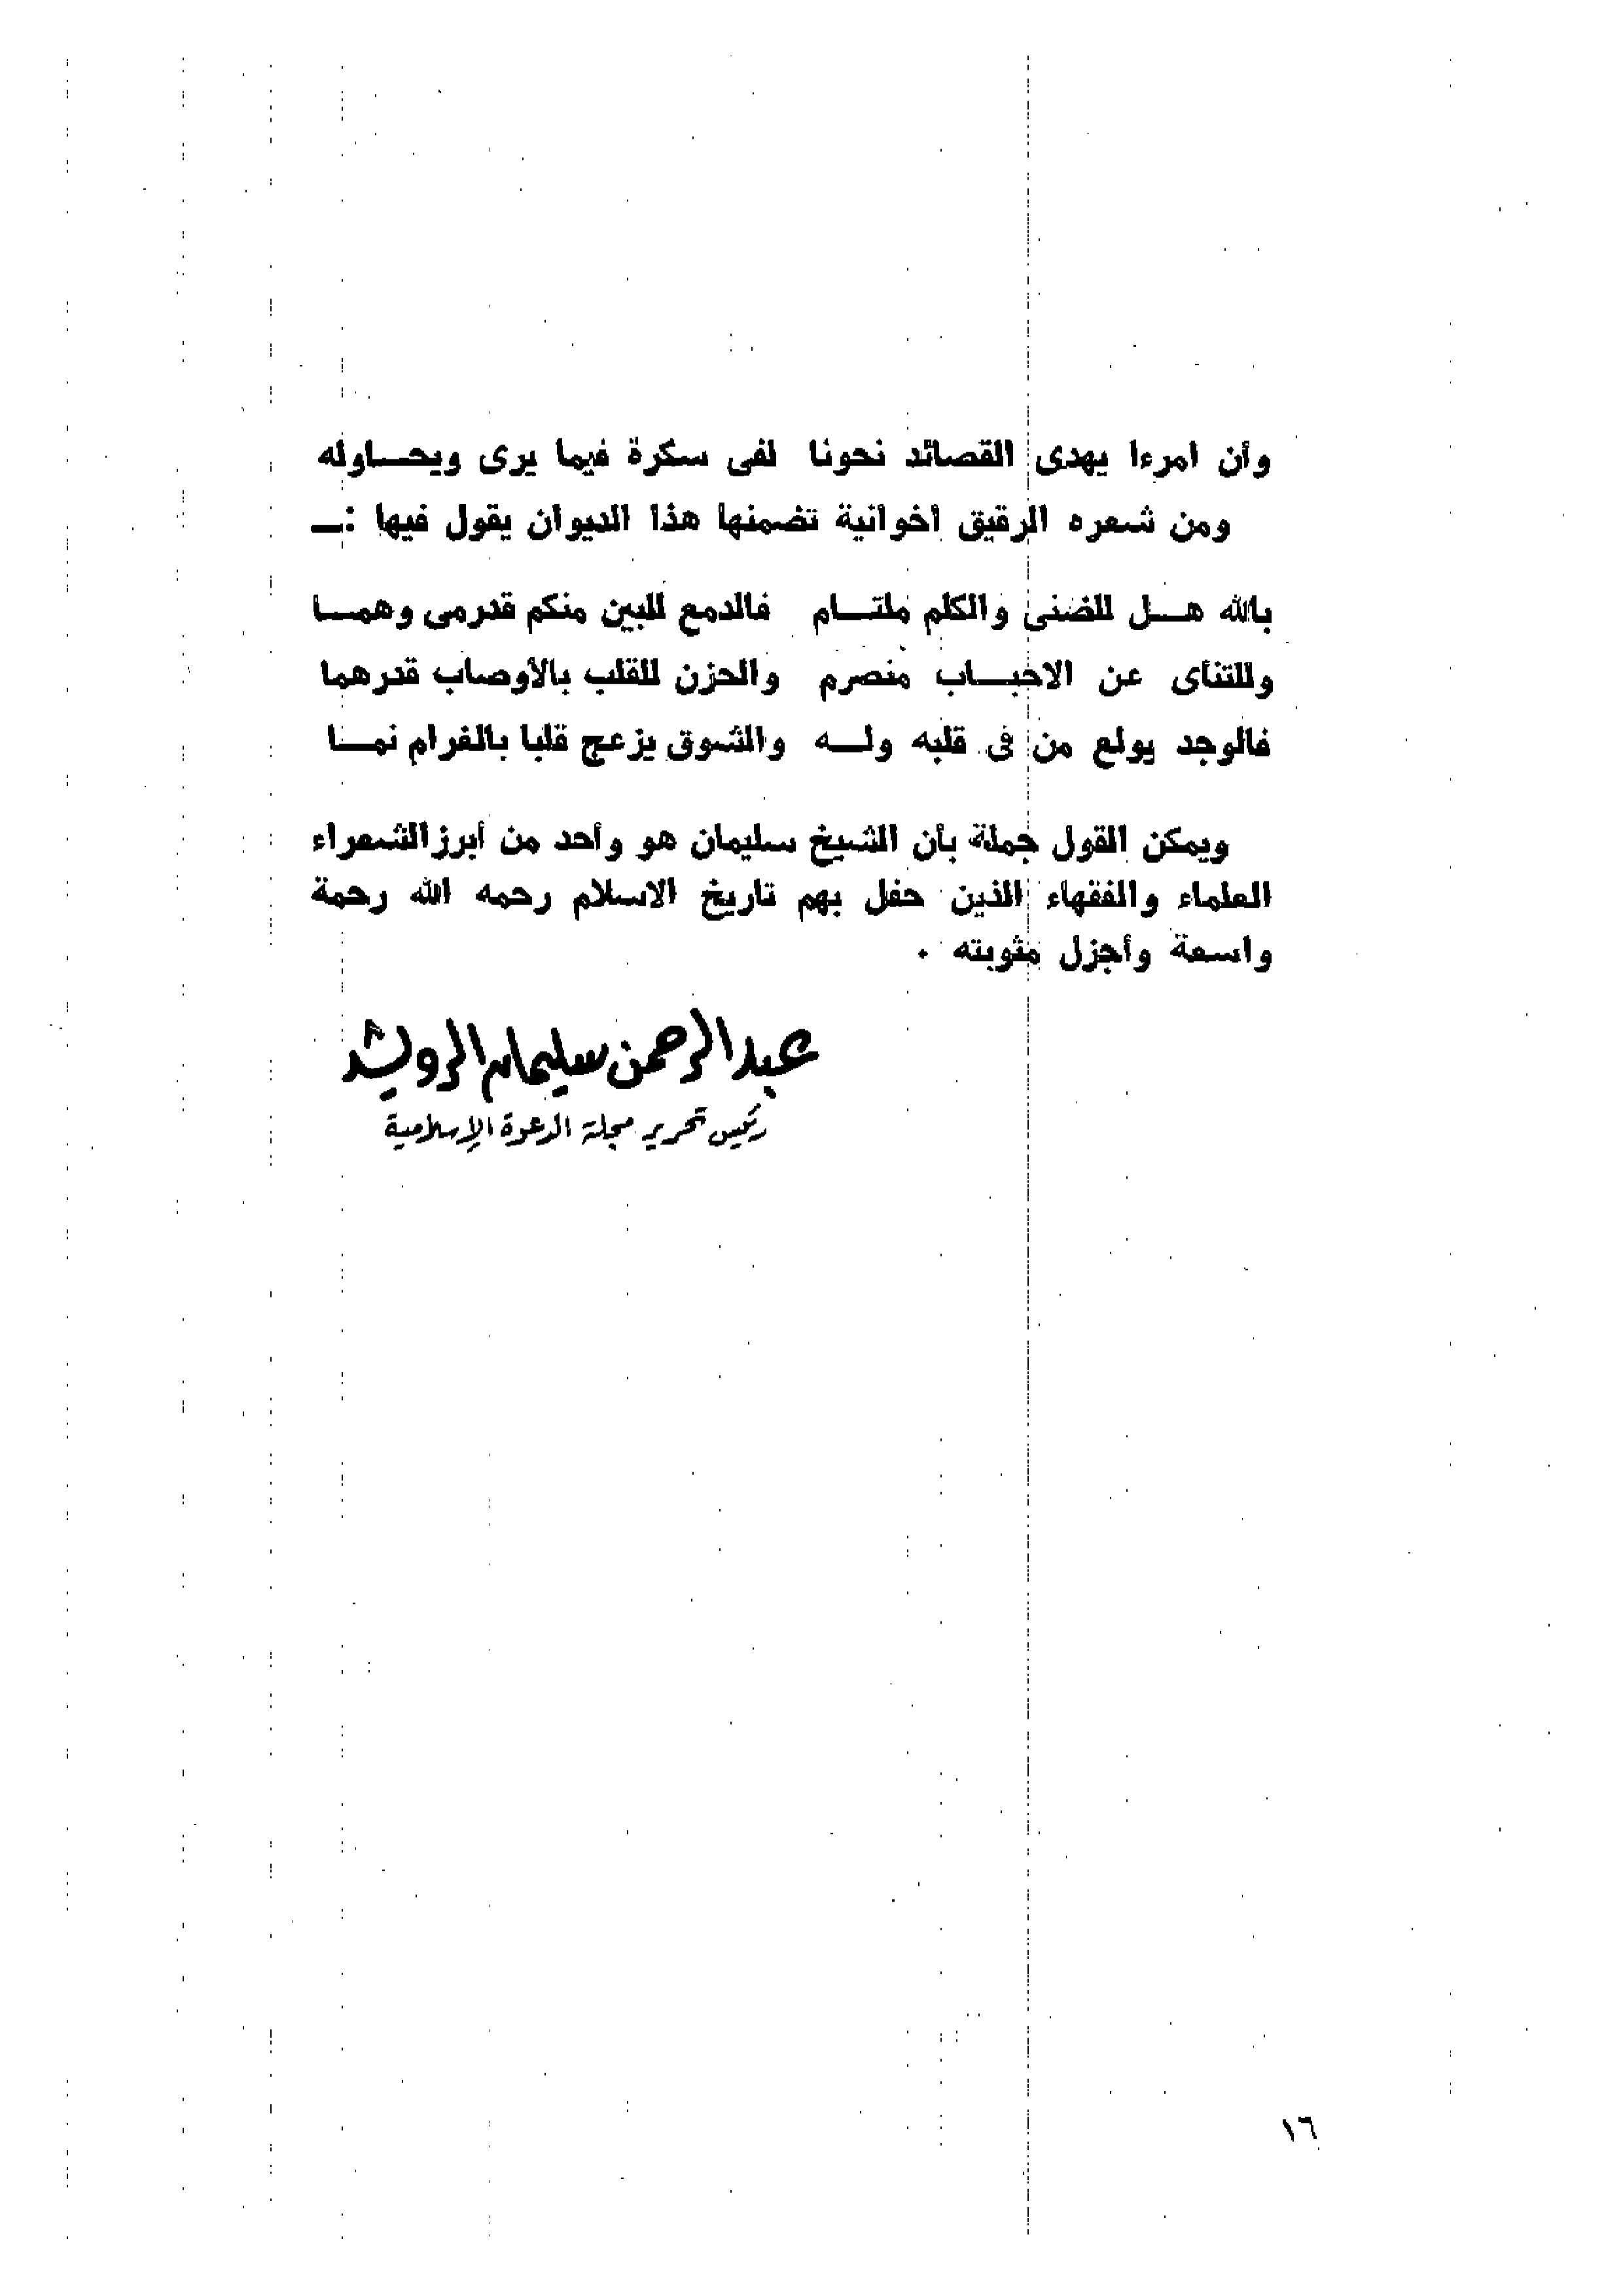 وأن امرءا يهدى القصائد نحونا لفى سكرة فيما يرى ويحـــاوله
ومن شعره الرقيق اخوانية تضمنها هذا الديوان يقول فيها :ــ
بالله هـــل للضنى والكلم ملتـــام فالدمع للبين منكم قدرمى وهمـــا
وللتنأى عن الاحبـــاب منصرم والحزن للقلب بالأوصاب قدرهما
فالوجد يولع من فى قلبه ولـــه والشوق يزعج قلبا بالغرام نمـــا
ويمكن القول جملة بأن الشيخ سليمان هو واحد من أبرز الشعراء
العلماء والفقهاء الذين حفل بهم تاريخ الاسلام رحمه الله رحمة
واسعة وأجزل مثوبته .
عبدالرحمن سليمان الرويشد
رئيس تحرير مجلة الدعوة الإسلامية
١٦